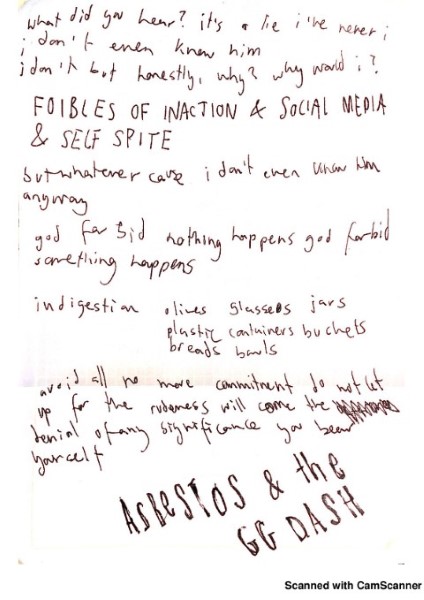 what did you hear? it's a lie i've never i
i don't even know him
i don't but honestly, why? why would i?
FOIBLES OF INACTION & SOCIAL MEDIA
& SELF SPITE
but whatever cause i don't even know him
anyway
god forbid nothing happens god forbid
something happens
indigestion olives glasses jars
plastic containers buckets
breads bowls
avoid all no more commitment do not let
up for the rudeness will come the
denial of any significance you
yourself
ASBESTOS & the
GG DASH
Scanned with CamScanner